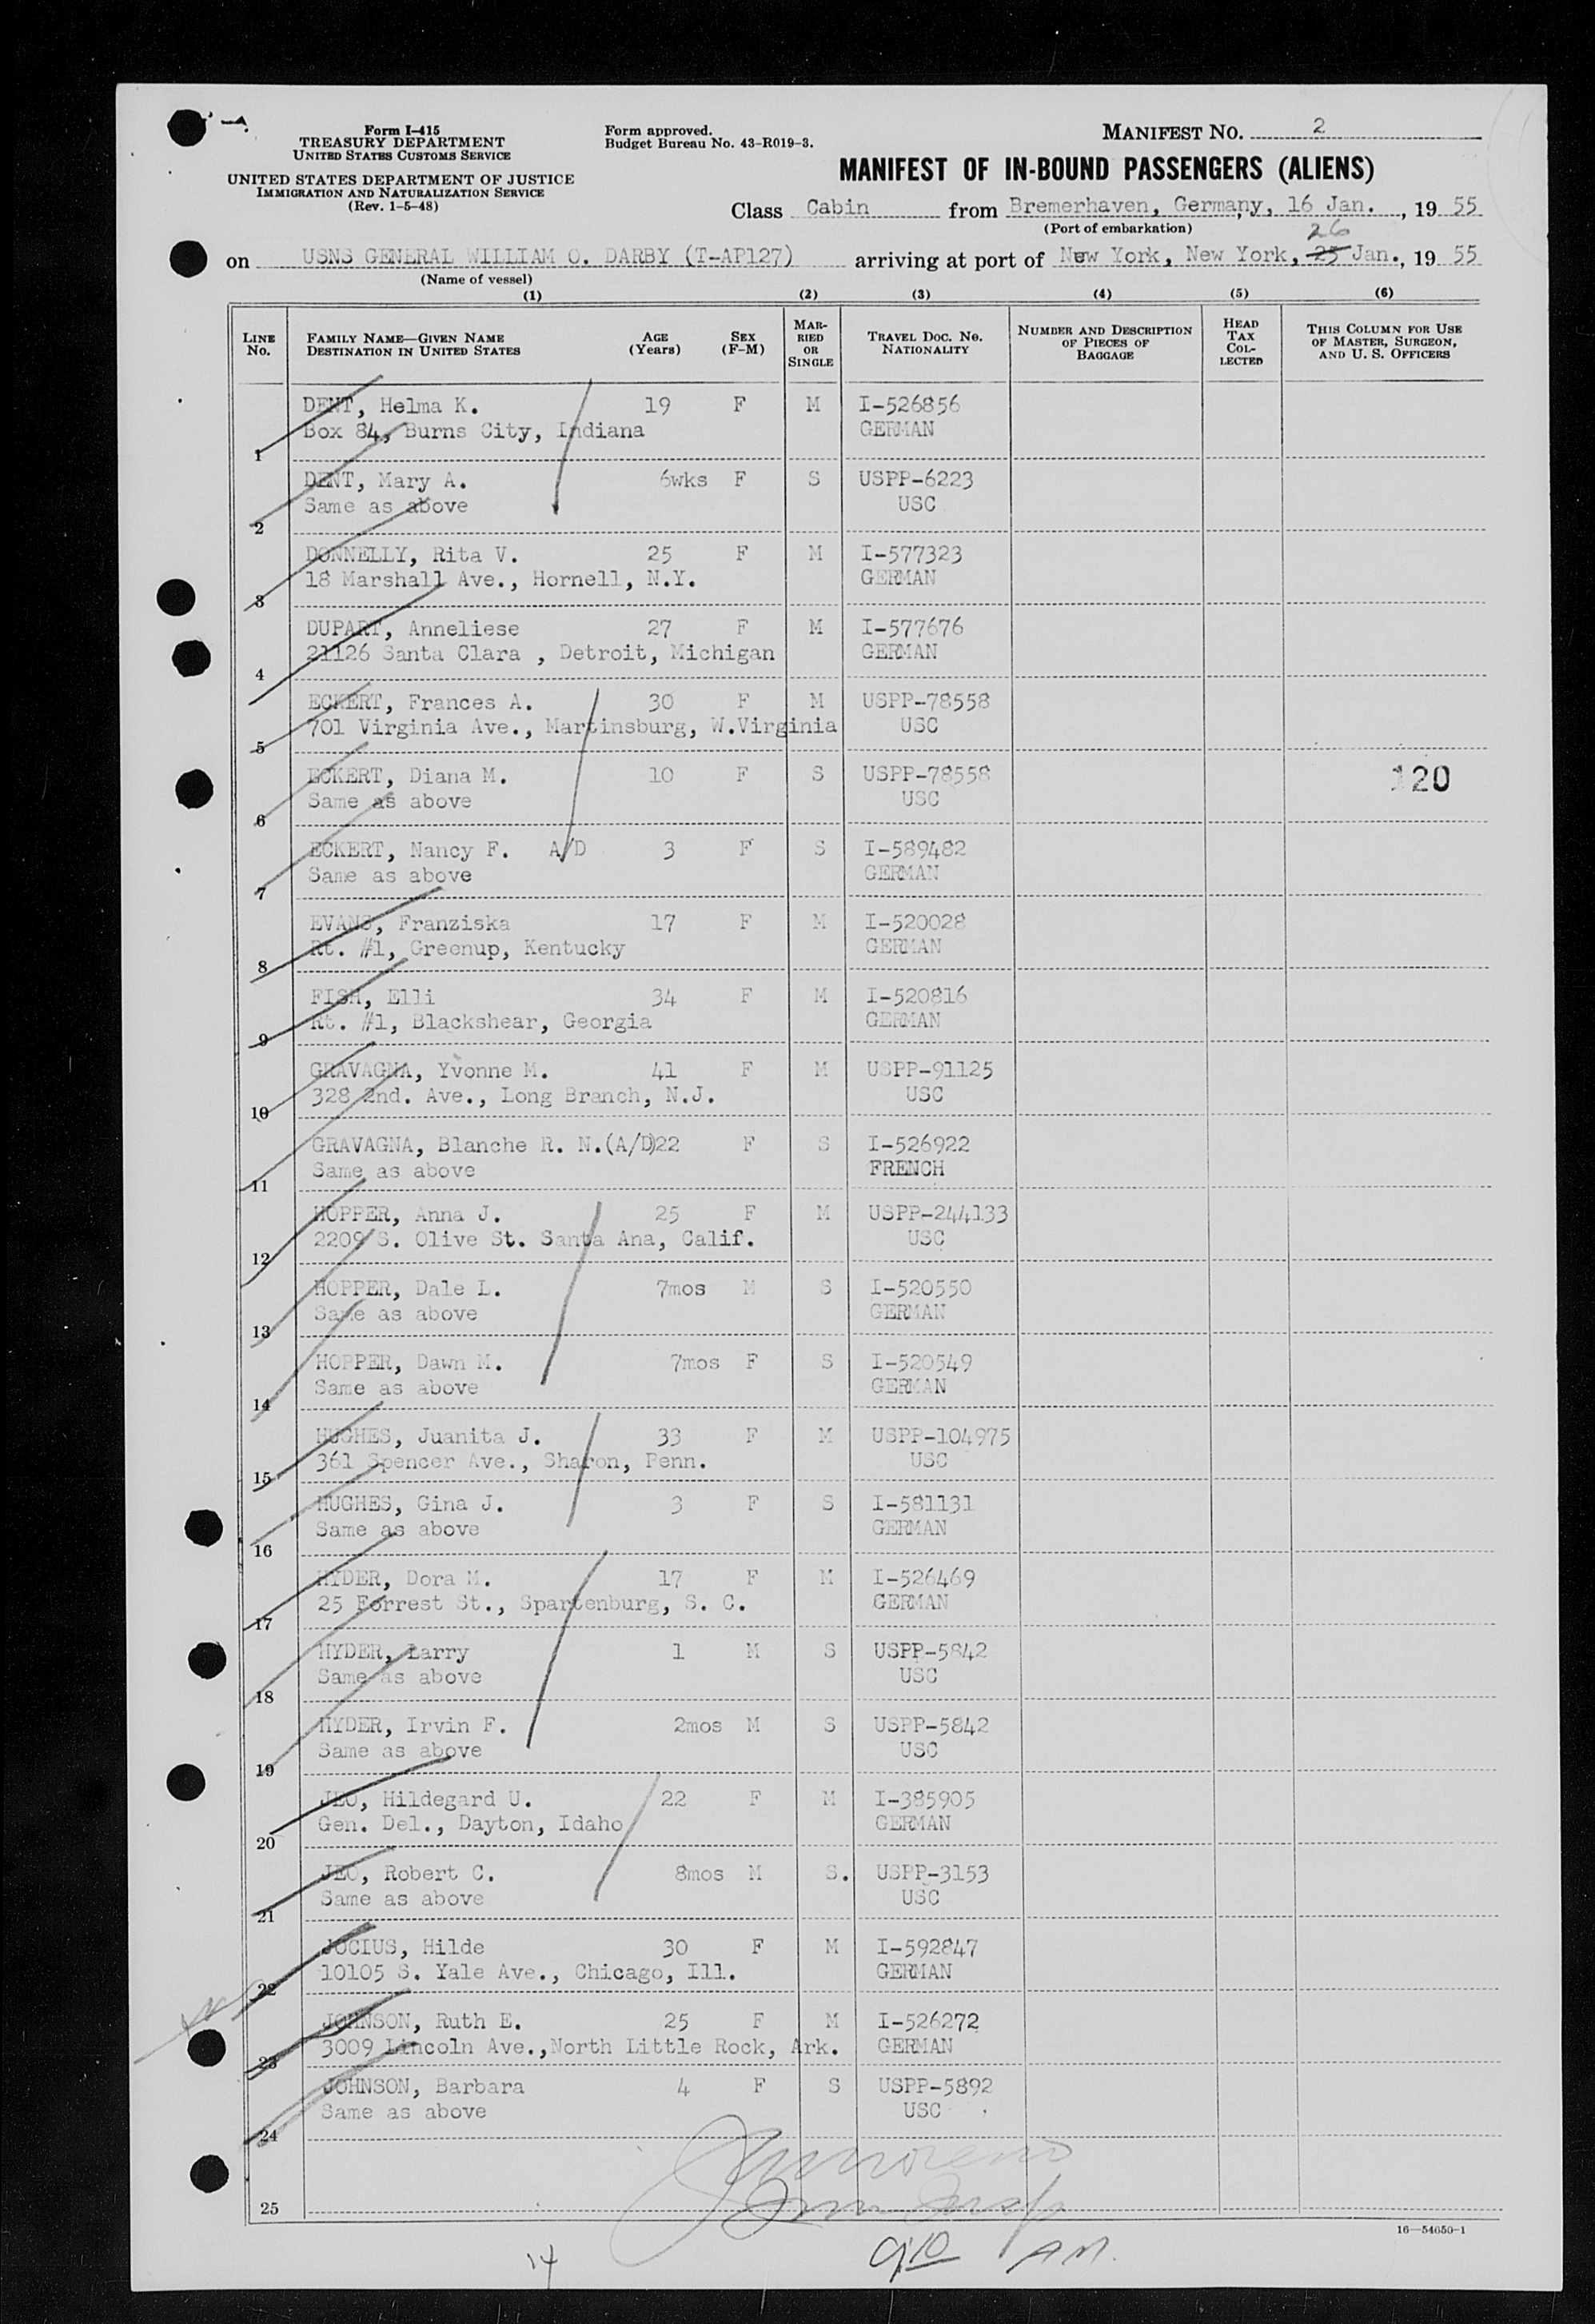 Form I-415
TREASURY DEPARTMENT
UNITED STATES CUSTOMS SERVICE
UNITED STATES DEPARTMENT OF JUSTICE
IMMIGRATION AND NATURALIZATION SERVICE
(Rev. 1-5-48)
Form approved.
Budget Bureau No. 43-R019-3.
MANIFEST NO. 2
MANIFEST OF IN-BOUND PASSENGERS (ALIENS)
Class Cabin from Bremerhaven, Germany, 16 Jan., 19 55
(Port of embarkation)
26
on USNS GENERAL WILLIAM O. DARBY (T-AP127) arriving at port of New York, New York, 25 Jan., 19 55
(Name of vessel)
(1) (2) (3) (4) (5) (6)
LINE No. FAMILY NAME—GIVEN NAME DESTINATION IN UNITED STATES AGE (Years) SEX (F-M) MARRIED OR SINGLE TRAVEL DOC. No. NATIONALITY NUMBER AND DESCRIPTION OF PIECES OF BAGGAGE HEAD TAX COLLECTED THIS COLUMN FOR USE OF MASTER, SURGEON, AND U. S. OFFICERS
DENT, Helma K. 19 F M I-526856
1 Box 84, Burns City, Indiana GERMAN
DENT, Mary A. 6wks F S USPP-6223
2 Same as above USC
DONNELLY, Rita V. 25 F M I-577323
3 18 Marshall Ave., Hornell, N.Y. GERMAN
DUPART, Anneliese 27 F M I-577676
4 21126 Santa Clara , Detroit, Michigan GERMAN
ECKERT, Frances A. 30 F M USPP-78558
5 701 Virginia Ave., Martinsburg, W.Virginia USC
ECKERT, Diana M. 10 F S USPP-78558 120
6 Same as above USC
ECKERT, Nancy F. A/D 3 F S I-589482
7 Same as above GERMAN
EVANS, Franziska 17 F M I-520028
8 Rt. #1, Greenup, Kentucky GERMAN
FISH, Elli 34 F M I-520816
9 Rt. #1, Blackshear, Georgia GERMAN
GRAVAGNA, Yvonne M. 41 F M USPP-91125
10 328 2nd. Ave., Long Branch, N.J. USC
GRAVAGNA, Blanche R. N.(A/D)22 F S I-526922
11 Same as above FRENCH
HOPPER, Anna J. 25 F M USPP-244133
12 2209 S. Olive St. Santa Ana, Calif. USC
HOPPER, Dale L. 7mos M S I-520550
13 Same as above GERMAN
HOPPER, Dawn M. 7mos F S I-520549
14 Same as above GERMAN
HUGHES, Juanita J. 33 F M USPP-104975
15 361 Spencer Ave., Sharon, Penn. USC
HUGHES, Gina J. 3 F S I-581131
16 Same as above GERMAN
HYDER, Dora M. 17 F M I-526469
17 25 Forrest St., Spartenburg, S. C. GERMAN
HYDER, Larry 1 M S USPP-5842
18 Same as above USC
HYDER, Irvin F. 2mos M S USPP-5842
19 Same as above USC
JEO, Hildegard U. 22 F M I-385905
20 Gen. Del., Dayton, Idaho GERMAN
JEO, Robert C. 8mos M S. USPP-3153
21 Same as above USC
JOCIUS, Hilde 30 F M I-592847
22 10105 S. Yale Ave., Chicago, Ill. GERMAN
JOHNSON, Ruth E. 25 F M I-526272
23 3009 Lincoln Ave.,North Little Rock, Ark. GERMAN
JOHNSON, Barbara 4 F S USPP-5892
24 Same as above USC
25
16—54650-1
14 9:10 AM.